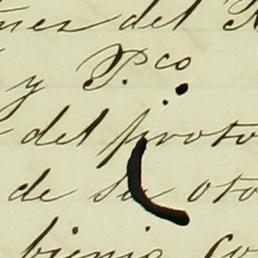 del
y P.co
del proto
de su oto
bienio Co